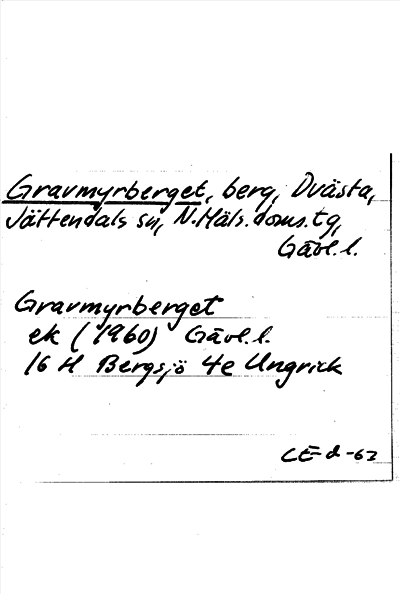 Gravmyrberget, berg, Dvästa,
Jättendals sn, N. Häls. doms. tg,
Gävl. l.
Gravmyrberget
ek (1960) Gävl. l.
16 H Bergsjö 4e Ungrick
CE-d -62